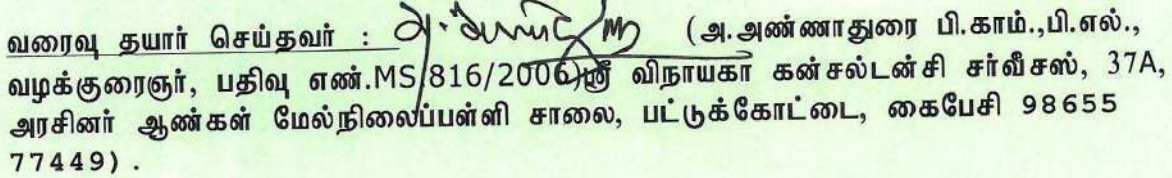 வரைவு தயார் செய்தவர் : (அ.அண்ணாதுரை பி.காம்.,பி.எல்.,
வழக்குரைஞர், பதிவு எண்.MS/816/2006)ஸ்ரீ விநாயகா கன்சல்டன்சி சர்வீசஸ், 37A,
அரசினர் ஆண்கள் மேல்நிலைப்பள்ளி சாலை, பட்டுக்கோட்டை, கைபேசி 98655
77449) .